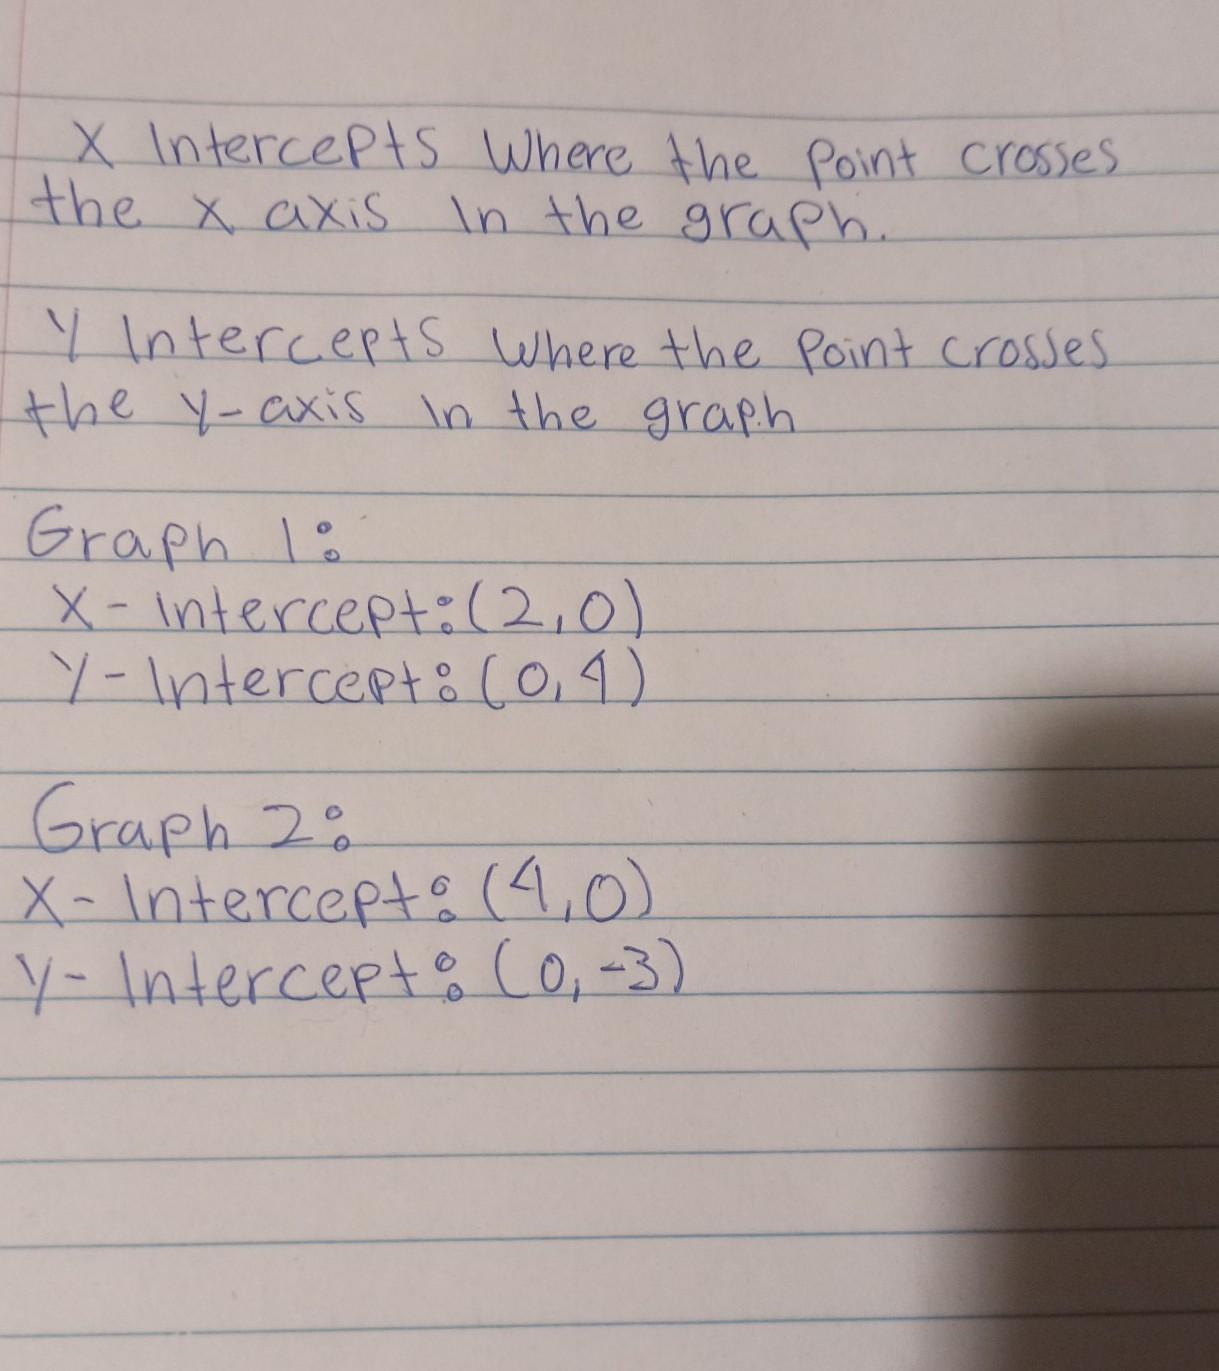 X Intercepts Where the Point crosses
the x axis In the graph.
Y Intercepts Where the Point crosses
the y-axis In the graph
Graph 1:
X-Intercept: (2,0)
Y-Intercept: (0,4)
Graph 2:
X-Intercept: (4,0)
Y-Intercept: (0,-3)